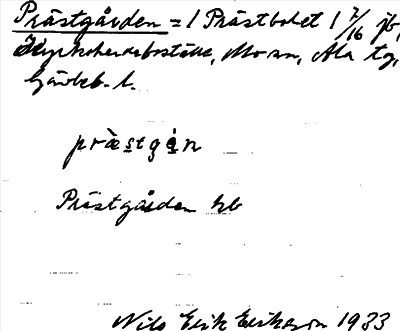 Prästgården = 1 Prästbolet 1 7/16 jb,
Kyrkoherdeboställe, Mo sn, Ala tg,
Gävleb. l.
prästgån
Prästgården kb
Nils Erik Eriksson 1933